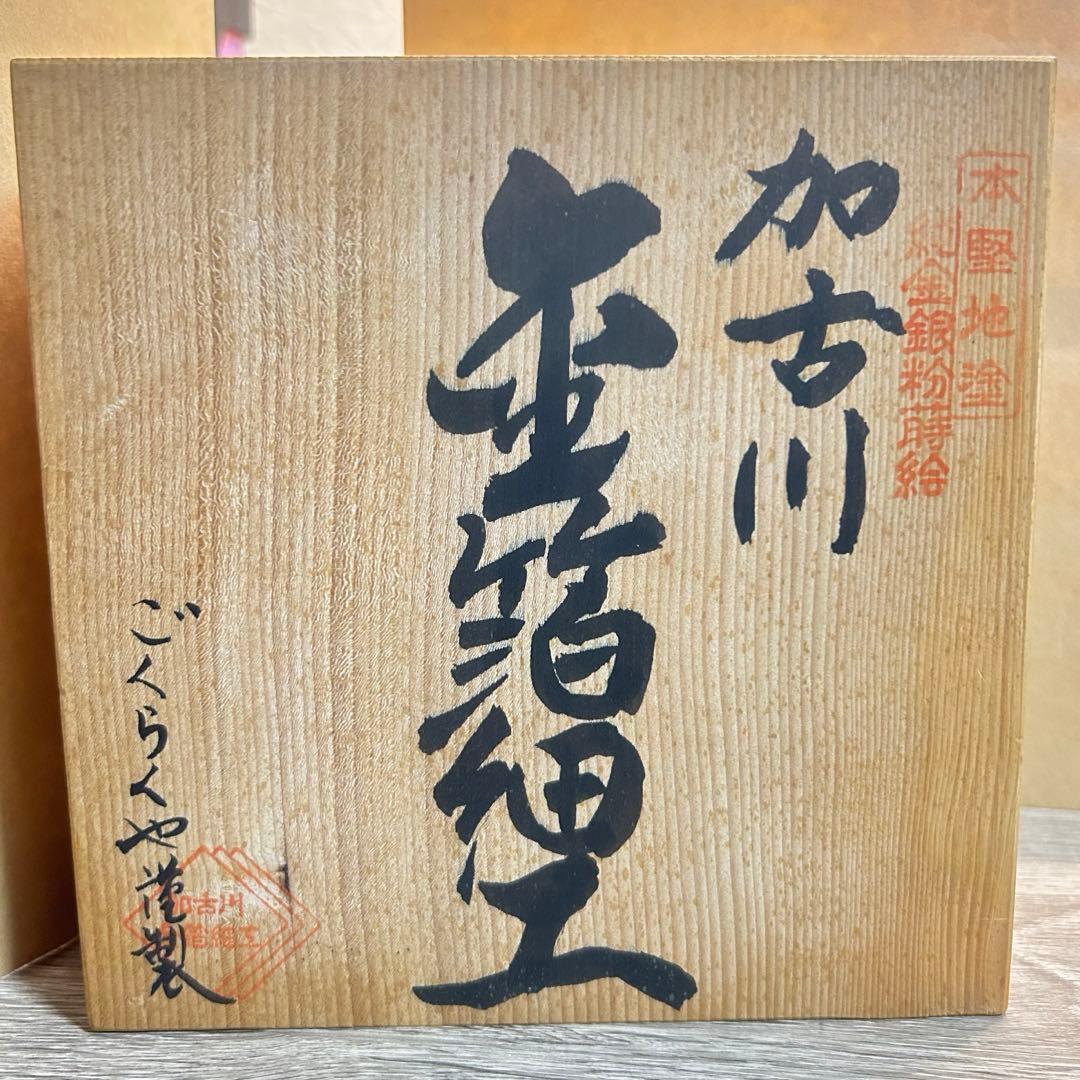 本堅地塗
純金銀粉蒔絵
加古川
金箔細工
ごくらくや謹製
加古川
金箔細工